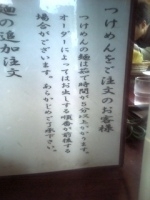 つけめんをご注文のお客様
つけめんの麺は茹で時間が5分以上かかります。
オーダーによってはお出しする順番が前後する
場合がございます。あらかじめご了承下さい。
麺の追加注文